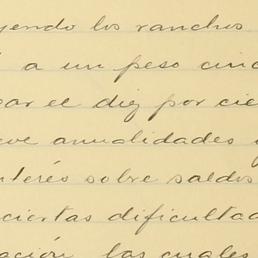 yendo los ranchos
a un peso cinc
gar el diez por cie
eve anualidades y
nterés sobre saldos
ciertas dificultad
ación, las cuales